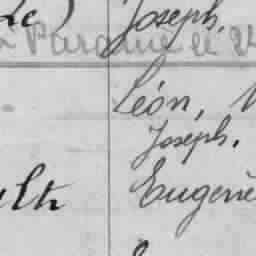 Le) Joseph,
Paramé le 2
Léon,
Joseph.
ult Eugène